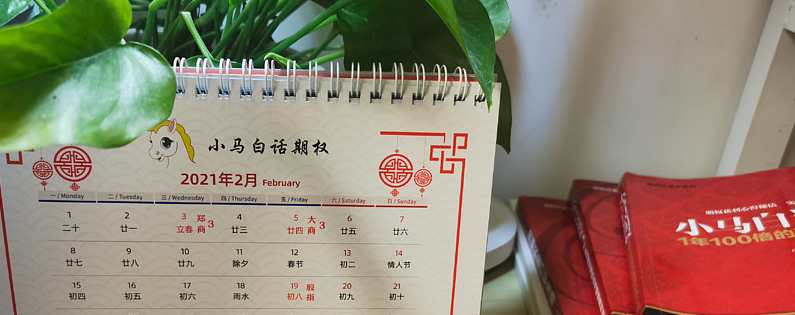 小马白话期权
2021年2月 February
一 / Monday 二 / Tuesday 三 / Wednesday 四 / Thursday 五 / Friday 六 / Saturday 日 / Sunday
1 2 3 郑商3 4 5 大商3 6 7
二十 廿一 立春 廿三 廿四 廿五 廿六
8 9 10 11 12 13 14
廿七 廿八 廿九 除夕 春节 初二 情人节
15 16 17 18 19 股指 20 21
初四 初五 初六 雨水 初八 初九 初十
小马白
1年100倍的